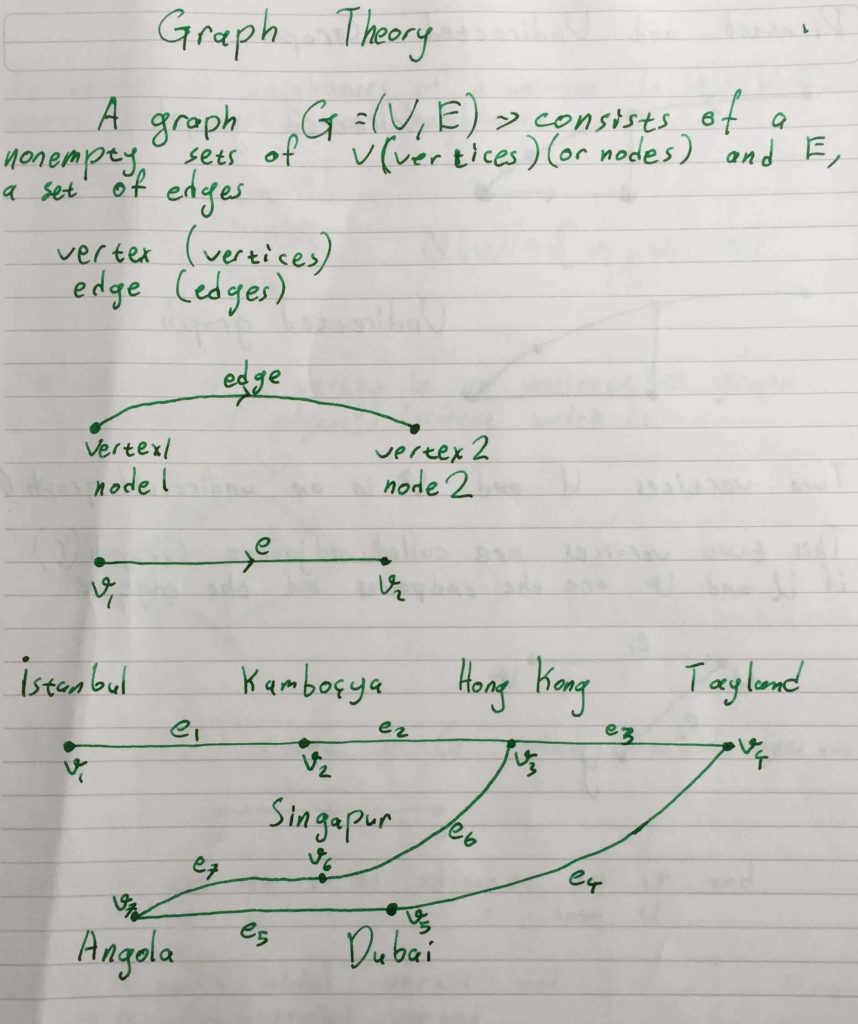 Graph Theory
A graph G=(V,E) => consists of a
nonempty sets of V(vertices)(or nodes) and E,
a set of edges
vertex (vertices)
edge (edges)
edge
vertex1 vertex 2
node1 node 2
e
v₁ v₂
İstanbul Kamboçya Hong Kong Tayland
e₁ e₂ e₃
v₁ v₂ v₃ v₄
Singapur
e₆
e₇ v₆
e₄
v₇ v₅
e₅
Angola Dubai